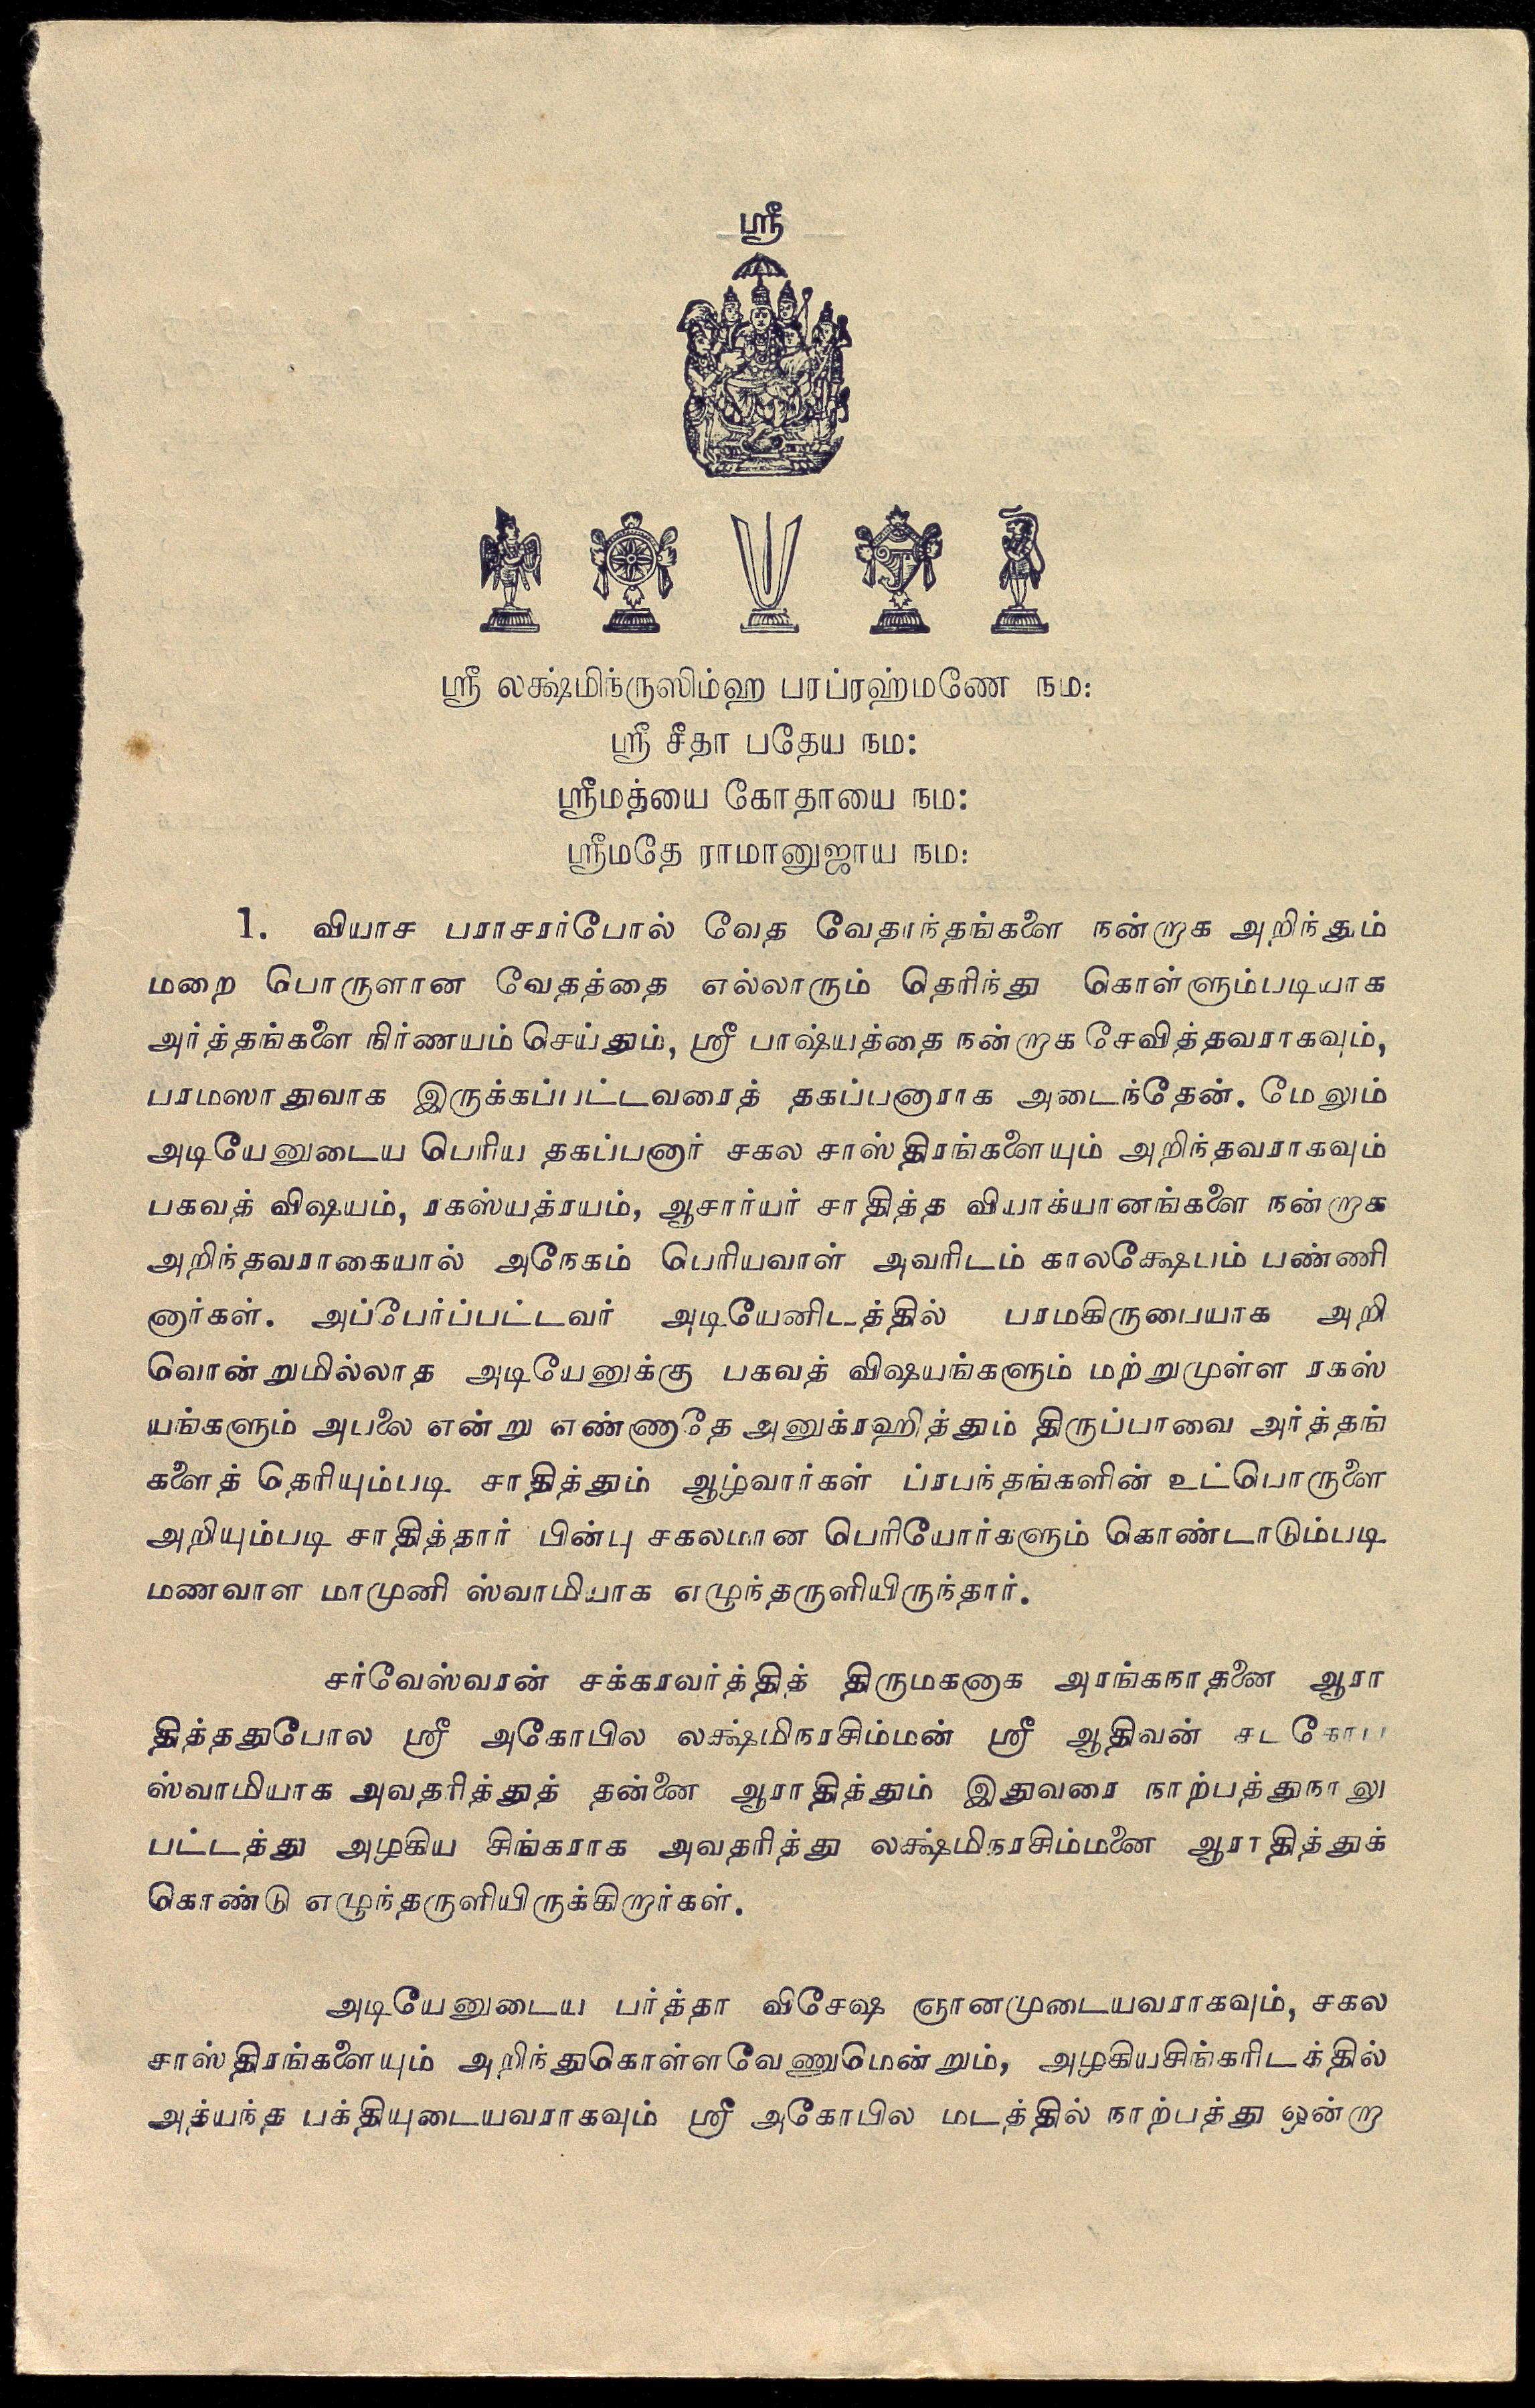 ஸ்ரீ
ஸ்ரீ லக்ஷ்மிந்ருஸிம்ஹ பரப்ரஹ்மணே நம:
ஸ்ரீ சீதா பதேய நம:
ஸ்ரீமத்யை கோதாயை நம:
ஸ்ரீமதே ராமானுஜாய நம:
1. வியாச பராசரர்போல் வேத வேதாந்தங்களை நன்றாக அறிந்தும்
மறை பொருளான வேதத்தை எல்லாரும் தெரிந்து கொள்ளும்படியாக
அர்த்தங்களை நிர்ணயம் செய்தும், ஸ்ரீ பாஷ்யத்தை நன்றாக சேவித்தவராகவும்,
பரமஸாதுவாக இருக்கப்பட்டவரைத் தகப்பனாராக அடைந்தேன். மேலும்
அடியேனுடைய பெரிய தகப்பனார் சகல சாஸ்திரங்களையும் அறிந்தவராகவும்
பகவத் விஷயம், ரகஸ்யத்ரயம், ஆசார்யர் சாதித்த வியாக்யானங்களை நன்றாக
அறிந்தவராகையால் அநேகம் பெரியவாள் அவரிடம் காலக்ஷேபம் பண்ணி
னார்கள். அப்பேர்ப்பட்டவர் அடியேனிடத்தில் பரமகிருபையாக அறி
வொன்றுமில்லாத அடியேனுக்கு பகவத் விஷயங்களும் மற்றுமுள்ள ரகஸ்
யங்களும் அபலை என்று எண்ணாதே அனுக்ரஹித்தும் திருப்பாவை அர்த்தங்
களைத் தெரியும்படி சாதித்தும் ஆழ்வார்கள் ப்ரபந்தங்களின் உட்பொருளை
அறியும்படி சாதித்தார் பின்பு சகலமான பெரியோர்களும் கொண்டாடும்படி
மணவாள மாமுனி ஸ்வாமியாக எழுந்தருளியிருந்தார்.
சர்வேஸ்வரன் சக்கரவர்த்தித் திருமகனாக அரங்கநாதனை ஆரா
தித்ததுபோல ஸ்ரீ அகோபில லக்ஷ்மிநரசிம்மன் ஸ்ரீ ஆதிவன் சடகோப
ஸ்வாமியாக அவதரித்துத் தன்னை ஆராதித்தும் இதுவரை நாற்பத்துநாலு
பட்டத்து அழகிய சிங்கராக அவதரித்து லக்ஷ்மிநரசிம்மனை ஆராதித்துக்
கொண்டு எழுந்தருளியிருக்கிறார்கள்.
அடியேனுடைய பர்த்தா விசேஷ ஞானமுடையவராகவும், சகல
சாஸ்திரங்களையும் அறிந்துகொள்ளவேணுமென்றும், அழகியசிங்கரிடத்தில்
அத்யந்த பக்தியுடையவராகவும் ஸ்ரீ அகோபில மடத்தில் நாற்பத்து ஒன்றா